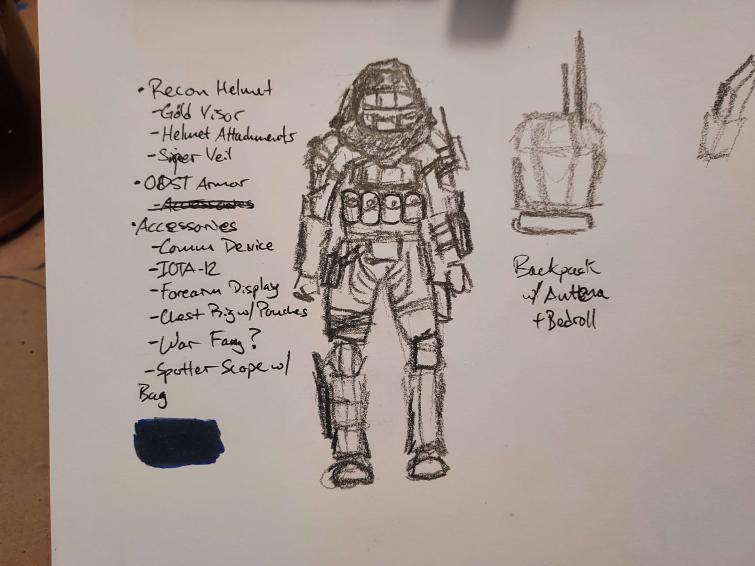 • Recon Helmet
- Gold Visor
- Helmet Attachments
- Sniper Veil
• ODST Armor
- Accessories
• Accessories
- Comm Device
- IOTA-12
- Forearm Display
- Chest Rig w/ Pouches
- War Fang?
- Spotter Scope w/
Bag
Backpack
w/ Antenna
+ Bedroll